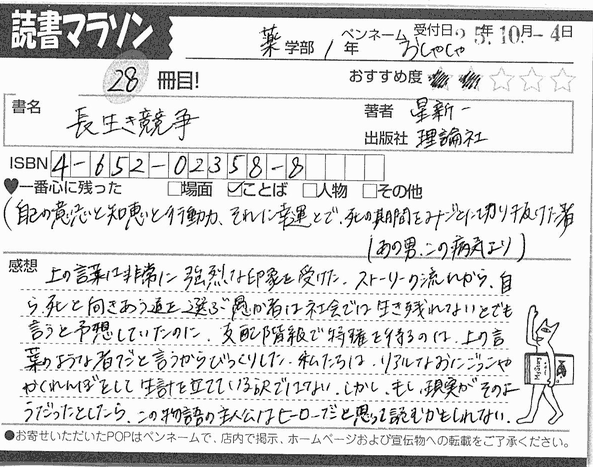 読書マラソン
薬 学部 1 年 ペンネーム おしゃしゃ 受付日 25年 10月 -4日
28 冊目! おすすめ度 ★★☆☆☆
書名 長生き競争 著者 星新一
出版社 理論社
ISBN 4-652-02358-8
♥一番心に残った □場面 ☑ことば □人物 □その他
(自己の意志と知恵と行動力、それに幸運とで、死の期間をみごとに切り抜けた者
(あの男、この病気より)
感想 上の言葉は非常に強烈な印象を受けた。ストーリーの流れから、自
ら死と向きあう道を選ぶ愚か者は社会では生き残れないとでも
言うと予想していたのに、支配階級で特権を得るのは、上の言
葉のような者だと言うからびっくりした。私たちは、リアルなおにごっこや
かくれんぼをして生計を立てている訳ではない。しかし、もし現実がそのよ
うだったとしたら、この物語の主人公はヒーローだと思って読むかもしれない。
●お寄せいただいたPOPはペンネームで、店内で掲示、ホームページおよび宣伝物への転載をご了承ください。